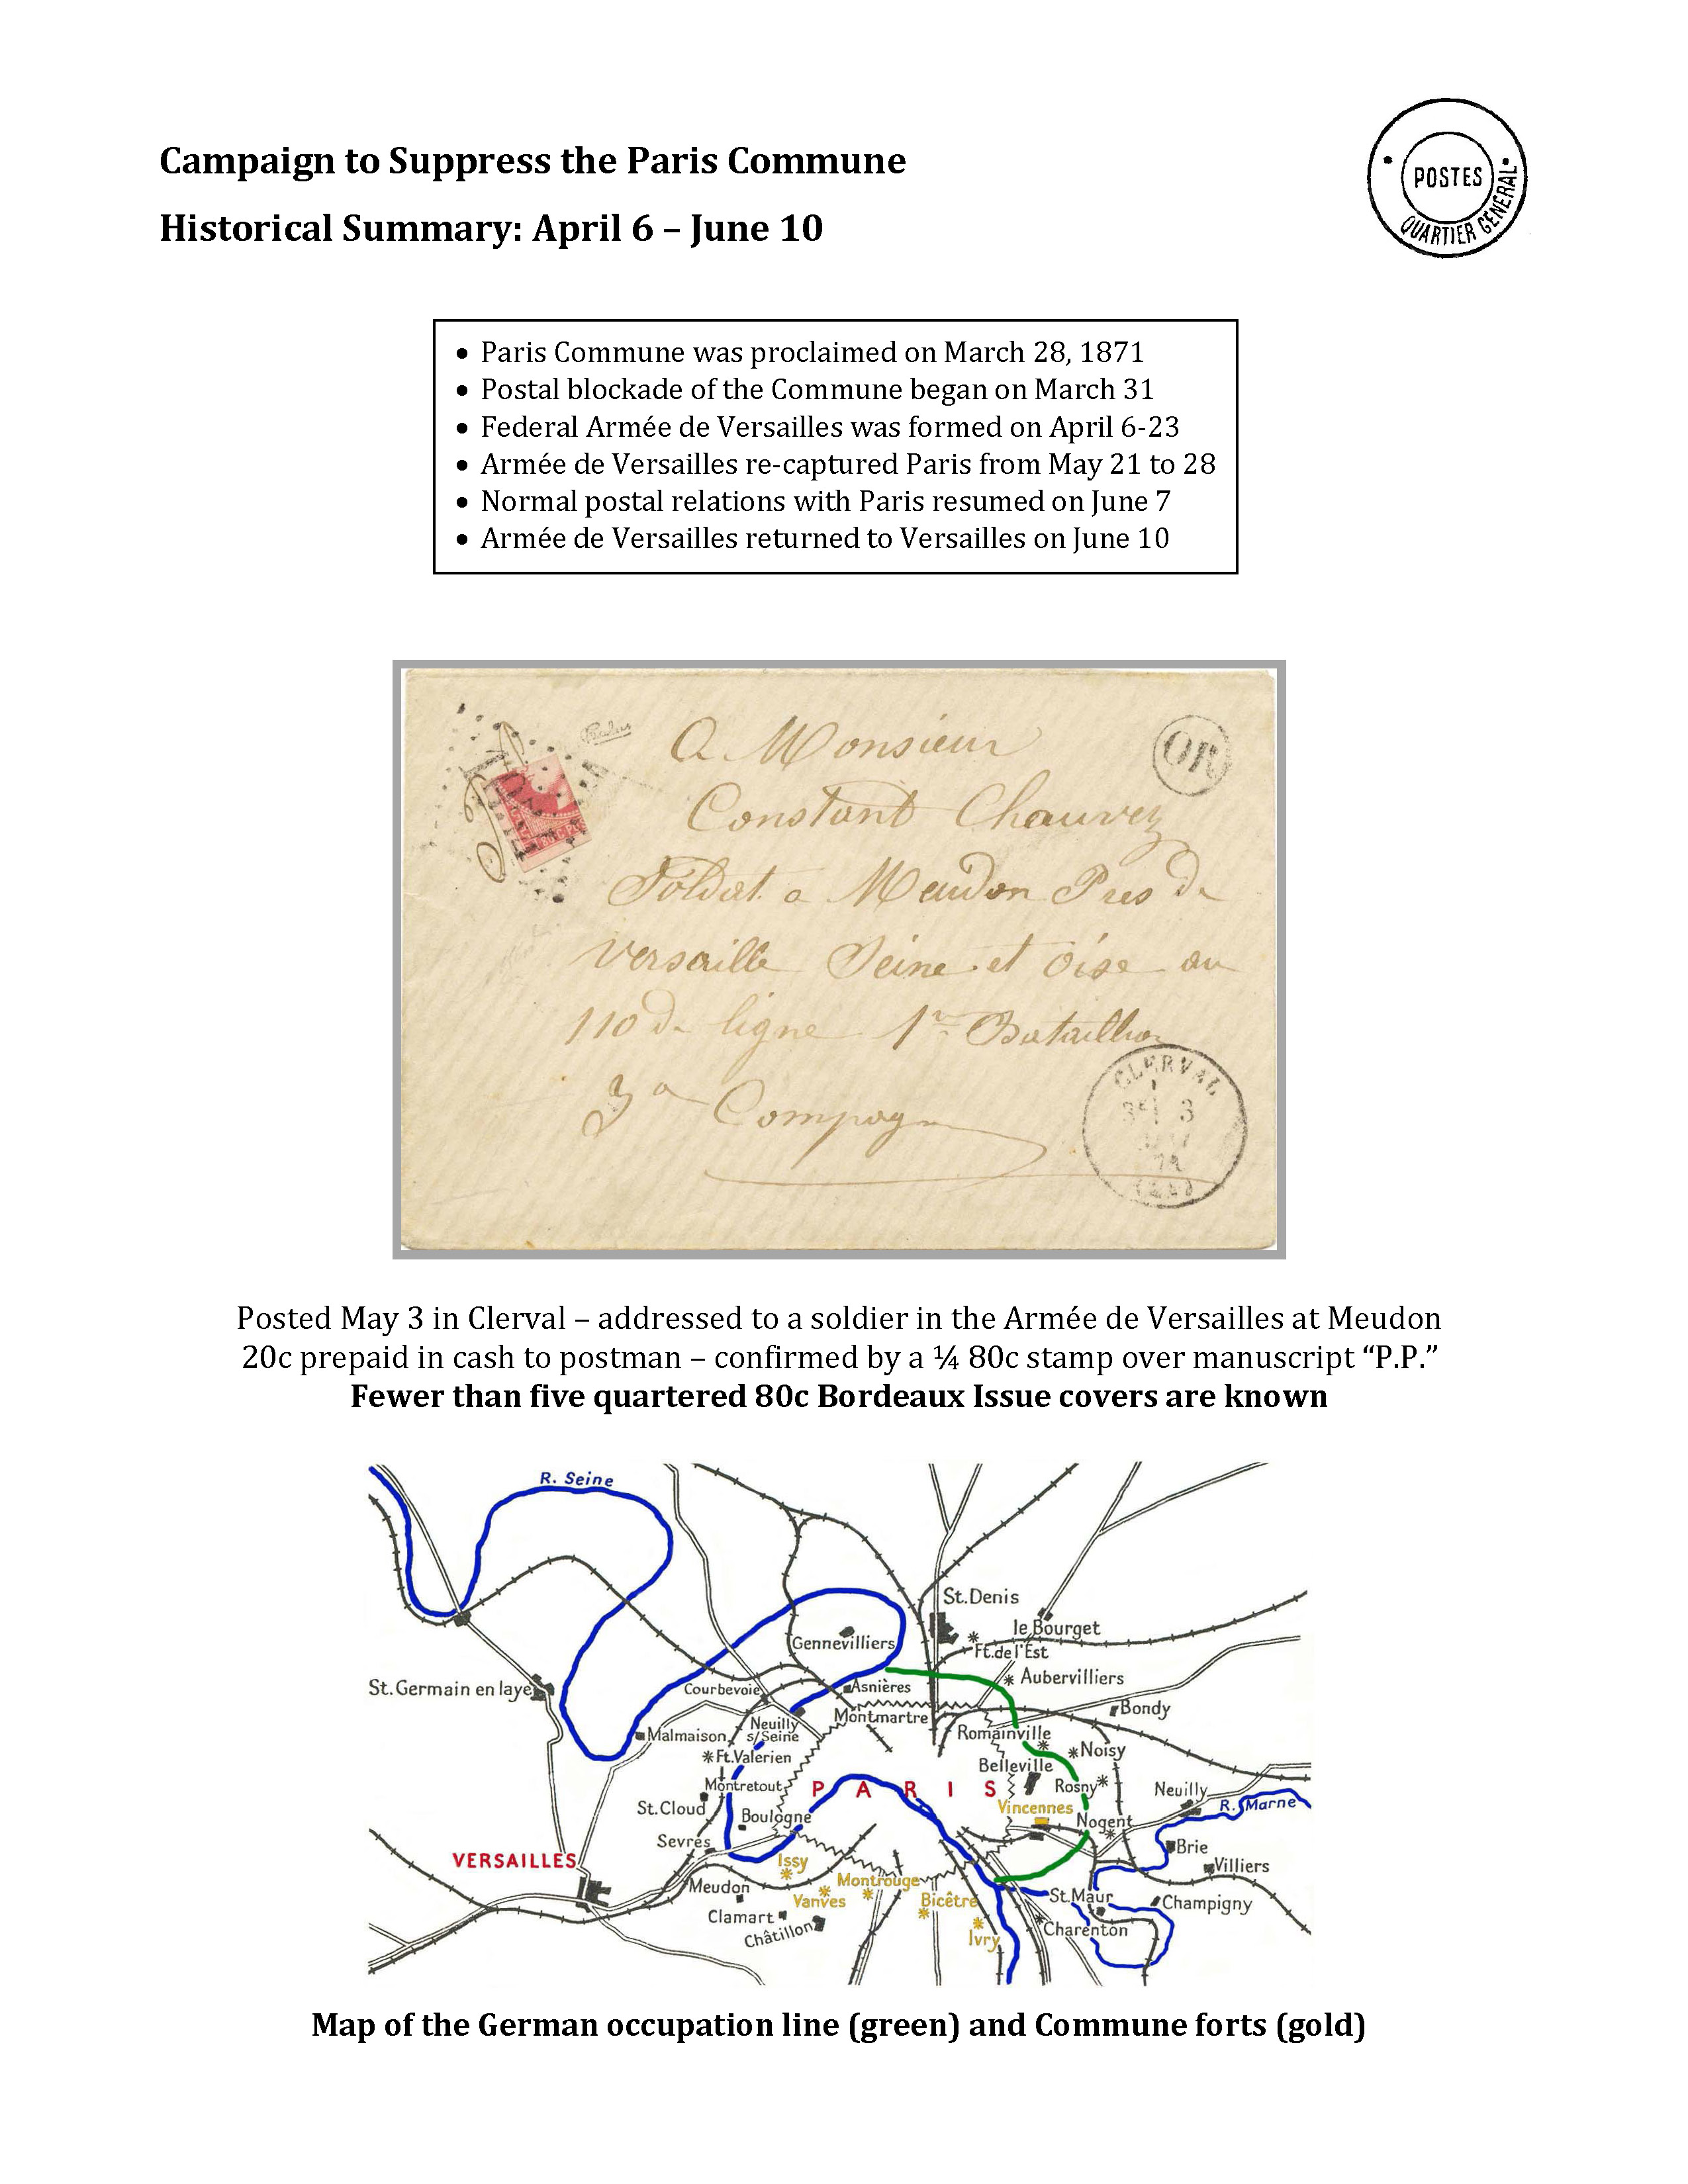 Campaign to Suppress the Paris Commune
Historical Summary: April 6 – June 10
POSTES
QUARTIER GÉNÉRAL
• Paris Commune was proclaimed on March 28, 1871
• Postal blockade of the Commune began on March 31
• Federal Armée de Versailles was formed on April 6-23
• Armée de Versailles re-captured Paris from May 21 to 28
• Normal postal relations with Paris resumed on June 7
• Armée de Versailles returned to Versailles on June 10
A Monsieur
OR
Constant Chauvez
Soldat a Meudon Pres de
Versaille Seine et Oise au
110 de ligne 1er Bataillion
3e Compagn
CLERVAL
3
71
80
Posted May 3 in Clerval – addressed to a soldier in the Armée de Versailles at Meudon
20c prepaid in cash to postman – confirmed by a ¼ 80c stamp over manuscript “P.P.”
Fewer than five quartered 80c Bordeaux Issue covers are known
R. Seine
St. Denis
le Bourget
Gennevilliers
Ft. de l'Est
Aubervilliers
St. Germain en laye
Courbevoie
Asnières
Bondy
Montmartre
Neuilly
s/Seine
Romainville
Malmaison
Noisy
Ft. Valerien
Belleville
Montretout
PARIS
Rosny
Neuilly
R. Marne
St. Cloud
Boulogne
Vincennes
Nogent
Sevres
Brie
VERSAILLES
Issy
Villiers
Meudon
Vanves
Montrouge
Bicêtre
St. Maur
Champigny
Clamart
Châtillon
Ivry
Charenton
Map of the German occupation line (green) and Commune forts (gold)